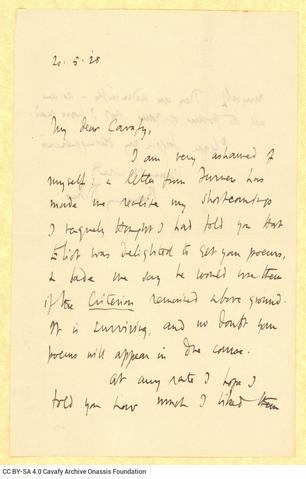 20. 5. 28
My dear Cavafy,
I am very ashamed of
myself; a letter from Furness has
made me realise my shortcomings
I vaguely thought I had told you that
Eliot was delighted to get your poems,
& bade me say he would use them
if the Criterion remained above ground.
It is surviving, and no doubt your
poems will appear in due course.
At any rate I hope I
told you how much I liked them
CC BY-SA 4.0 Cavafy Archive Onassis Foundation